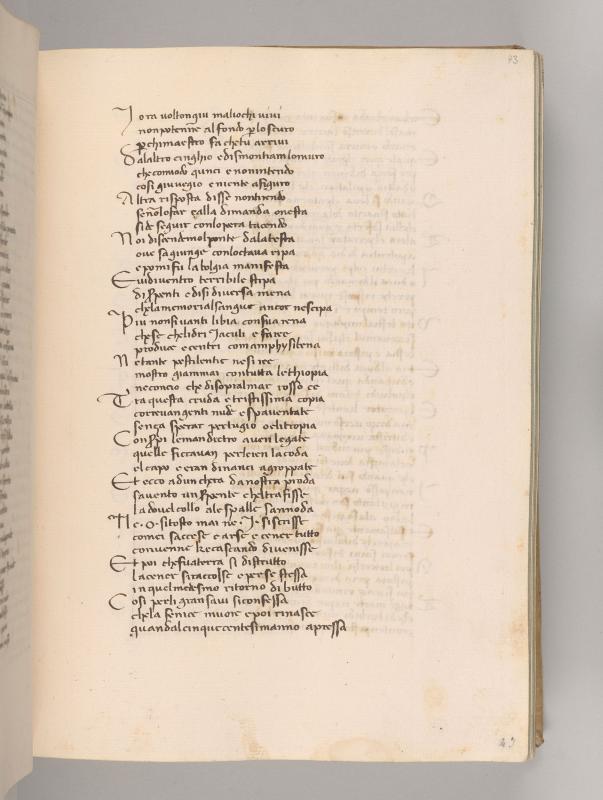 43
Io era volto in giu ma li ochi vivi
non potenne al fondo per lo scuro
per chi maestro fa che tu arrivi
Dalaltro cinghio e dismontiam lo muro
che comiodo quinci e non intendo
cosi giu vegio e niente afiguro
Altra risposta disse non ti rendo
se non lo far che alla dimanda onesta
si de seguir con lopera tacendo
Noi discendemol ponte dalatesta
ove sagiunge con loctava ripa
e poi mi fu la bolgia manifesta
E vidi ventro terribile stipa
di serpenti e di si diversa mena
che la memorial sangue ancor ne scipa
Piu non si vanti libia con sua rena
che se chelidri Jaculi e faree
produce e centri com amphysibena
Ne tante pestilentie ne si ree
mostro giammai con tutta lethiopia
ne con cio che di sopra al mar rosso ee
Tra questa cruda e tristissima copia
correvan genti nude e spaventate
senza sperar pertugio o elitropia
Con serpi le man dietro aven legate
quelle ficcavan per le ren la coda
el capo e eran dinanci agroppate
Et ecco ad un chera da nostra proda
savento un serpente chel trafisse
la dovel collo ale spalle sannoda
Ne . O . si tosto mai ne . I . si scrisse
comei saccese e arse e cener tutto
convenne che cascando divenisse
Et poi che fu a terra si distrutto
la cener si raccolse e per se stessa
in quel medesmo ritorno di butto
Cosi per li gran savi si confessa
che la fenice muore e poi rinasce
quando al cinquecentesimanno apressa